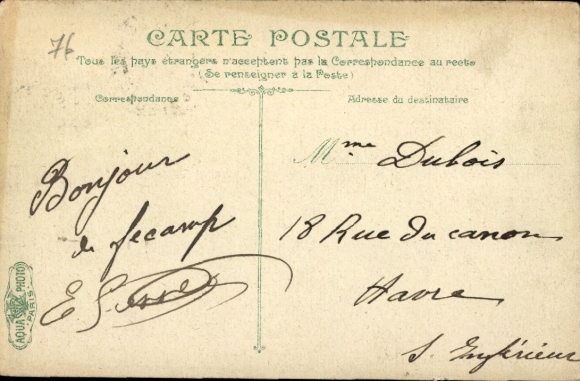 76
CARTE POSTALE
Tous les pays étrangers n'acceptent pas la Correspondance au recto
(Se renseigner à la Poste)
Correspondance
Adresse du destinataire
Bonjour
de fecamp
E
Mme Dubois
18 Rue du canon
Havre
S. Inférieur
AQUA PHOTO
PARIS